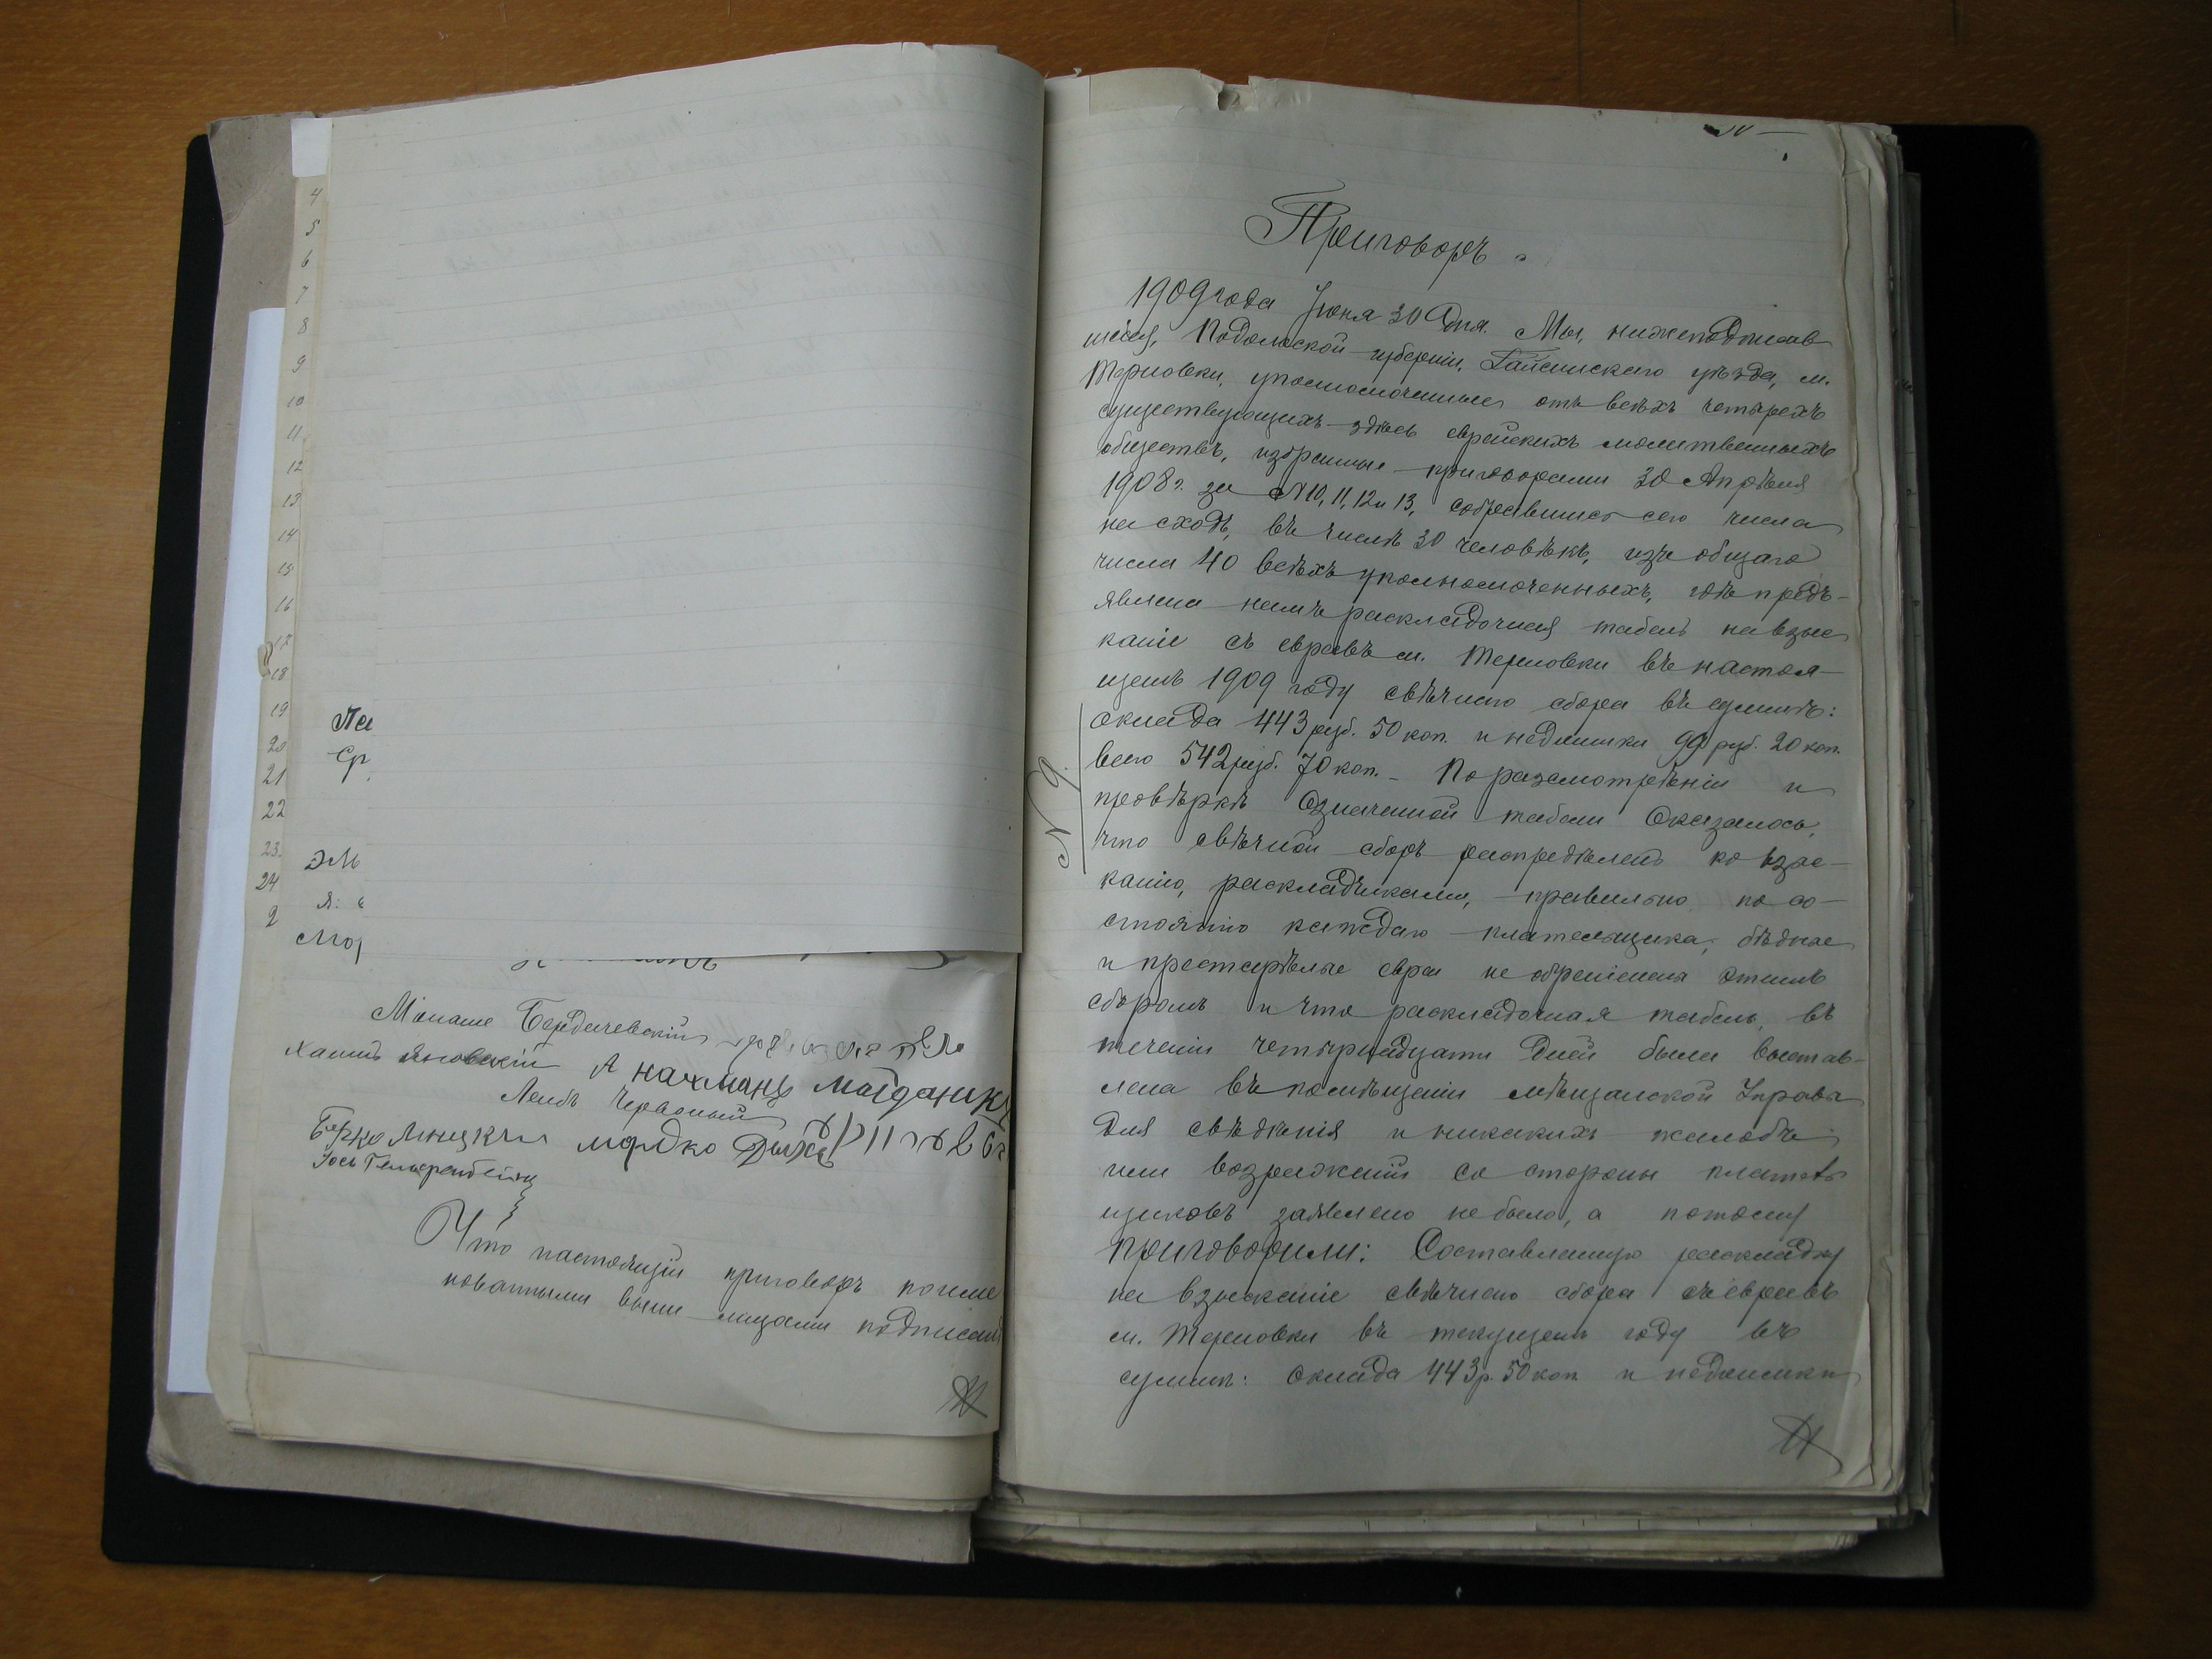 4
5
6
7
8
9
10
11
12
13
14
15
16
17
18
19
20
21
22
23.
24
2
Па
Ср
ЭМ
я: с
Мор
Монаше Бердичевскій
Хаимъ Яновскій А Нахманъ Майданикъ
Лейбъ Червоный
Берко Линцкій мордко
Іось Гельфенбейнъ
Что настоящій приговоръ поиме
нованными выше лицами подписанъ
Приговоръ.
1909 года Іюня 30 дня. Мы, нижеподписав
шіеся, Подольской губерніи, Гайсинскаго уѣзда, м.
Терновки, уполномоченные отъ всѣхъ четырехъ
существующихъ здѣсь еврейскихъ молитвенныхъ
обществъ, избранные приговорами 30 Апрѣля
1908 г. за №10, 11, 12 и 13, собравшись сего числа
на сходъ, въ числѣ 30 человѣкъ, изъ общаго
числа 40 всѣхъ уполномоченныхъ, гдѣ предъ-
явлена намъ раскладочная табель на взыс
каніе съ евреевъ м. Терновки въ настоя-
щемъ 1909 году свѣчного сбора въ суммѣ:
оклада 443 руб. 50 коп. и недоимки 99 руб. 20 коп.
всего 542 руб. 70 коп. – По разсмотрѣніи и
№ 9.
провѣркѣ означенной табели оказалось,
что свѣчной сборъ распредѣленъ ко взыс-
канію, раскладчиками, правильно по со-
стоянію каждаго плательщика, бѣдные
и престарѣлые евреи не обременены этимъ
сборомъ и что раскладочная табель, въ
теченіи четырнадцати дней была выстав-
лена въ помѣщеніи мѣщанской Управы
для свѣдѣнія и никакихъ жалобъ
или возраженій со стороны платель
щиковъ заявлено не было, а потому
приговорили: Составленную раскладку
на взысканіе свѣчного сбора съ евреевъ
м. Терновки въ текущемъ году въ
суммѣ: оклада 443 р. 50 коп и недоимки